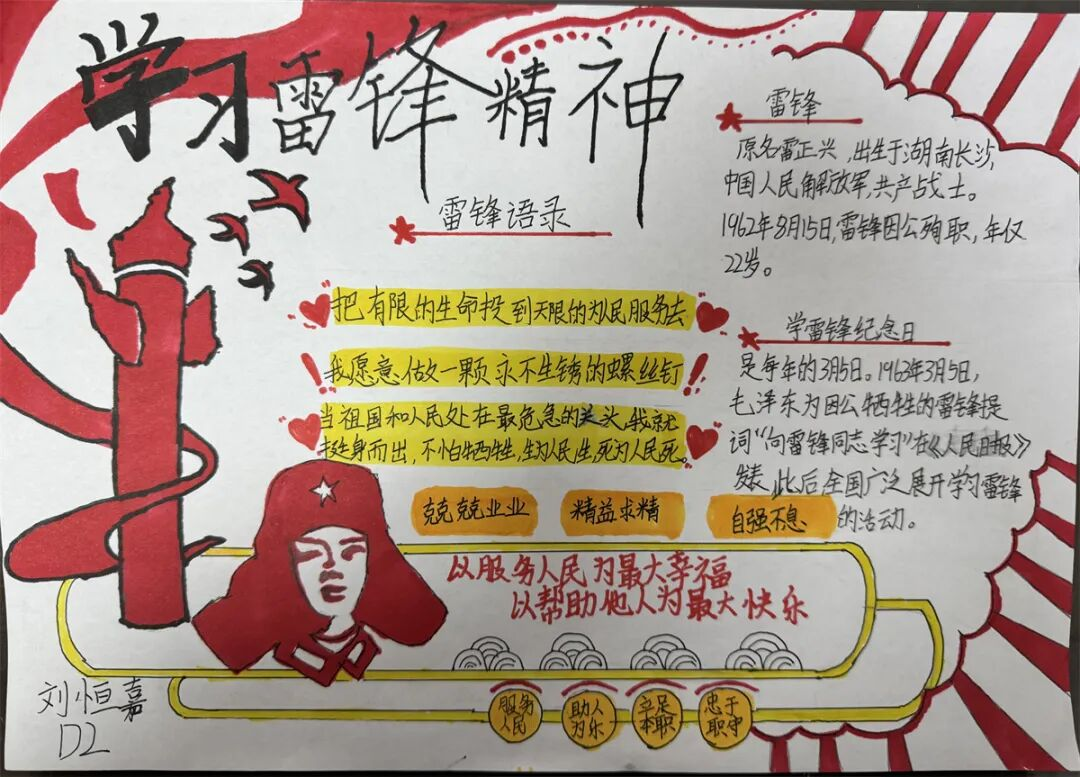 学习雷锋精神
雷锋语录
把有限的生命投到无限的为民服务去
我愿意做一颗永不生锈的螺丝钉
当祖国和人民处在最危急的关头,我就
挺身而出,不怕牺牲,生为人民生,死为人民死。
兢兢业业
精益求精
自强不息
雷锋
原名雷正兴,出生于湖南长沙,
中国人民解放军,共产战士。
1962年8月15日,雷锋因公殉职,年仅
22岁。
学雷锋纪念日
是每年的3月5日。1963年3月5日,
毛泽东为因公牺牲的雷锋提
词“向雷锋同志学习”在《人民日报》
发表,此后全国广泛展开学习雷锋
的活动。
以服务人民为最大幸福
以帮助他人为最大快乐
服务
人民
助人
为乐
立足
本职
忠于
职守
刘恒嘉
D2